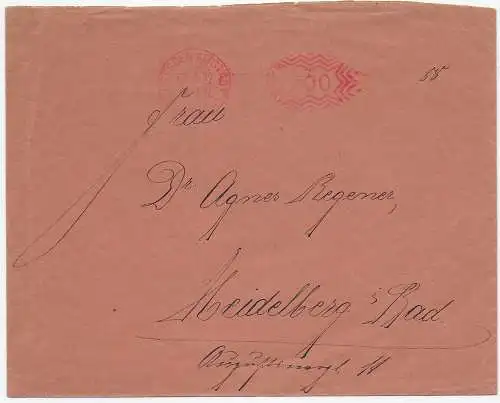 55
Frau
Dr Agnes Regener,
Heidelberg i Bad
11